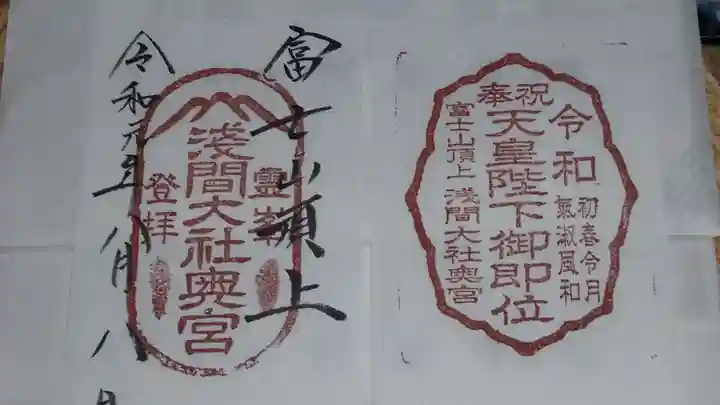 奉祝
令和
初春令月
氣淑風和
天皇陛下御即位
富士山頂上 浅間大社奥宮
富士山頂上
霊峯
浅間大社奥宮
登拝
令和元年八月八日